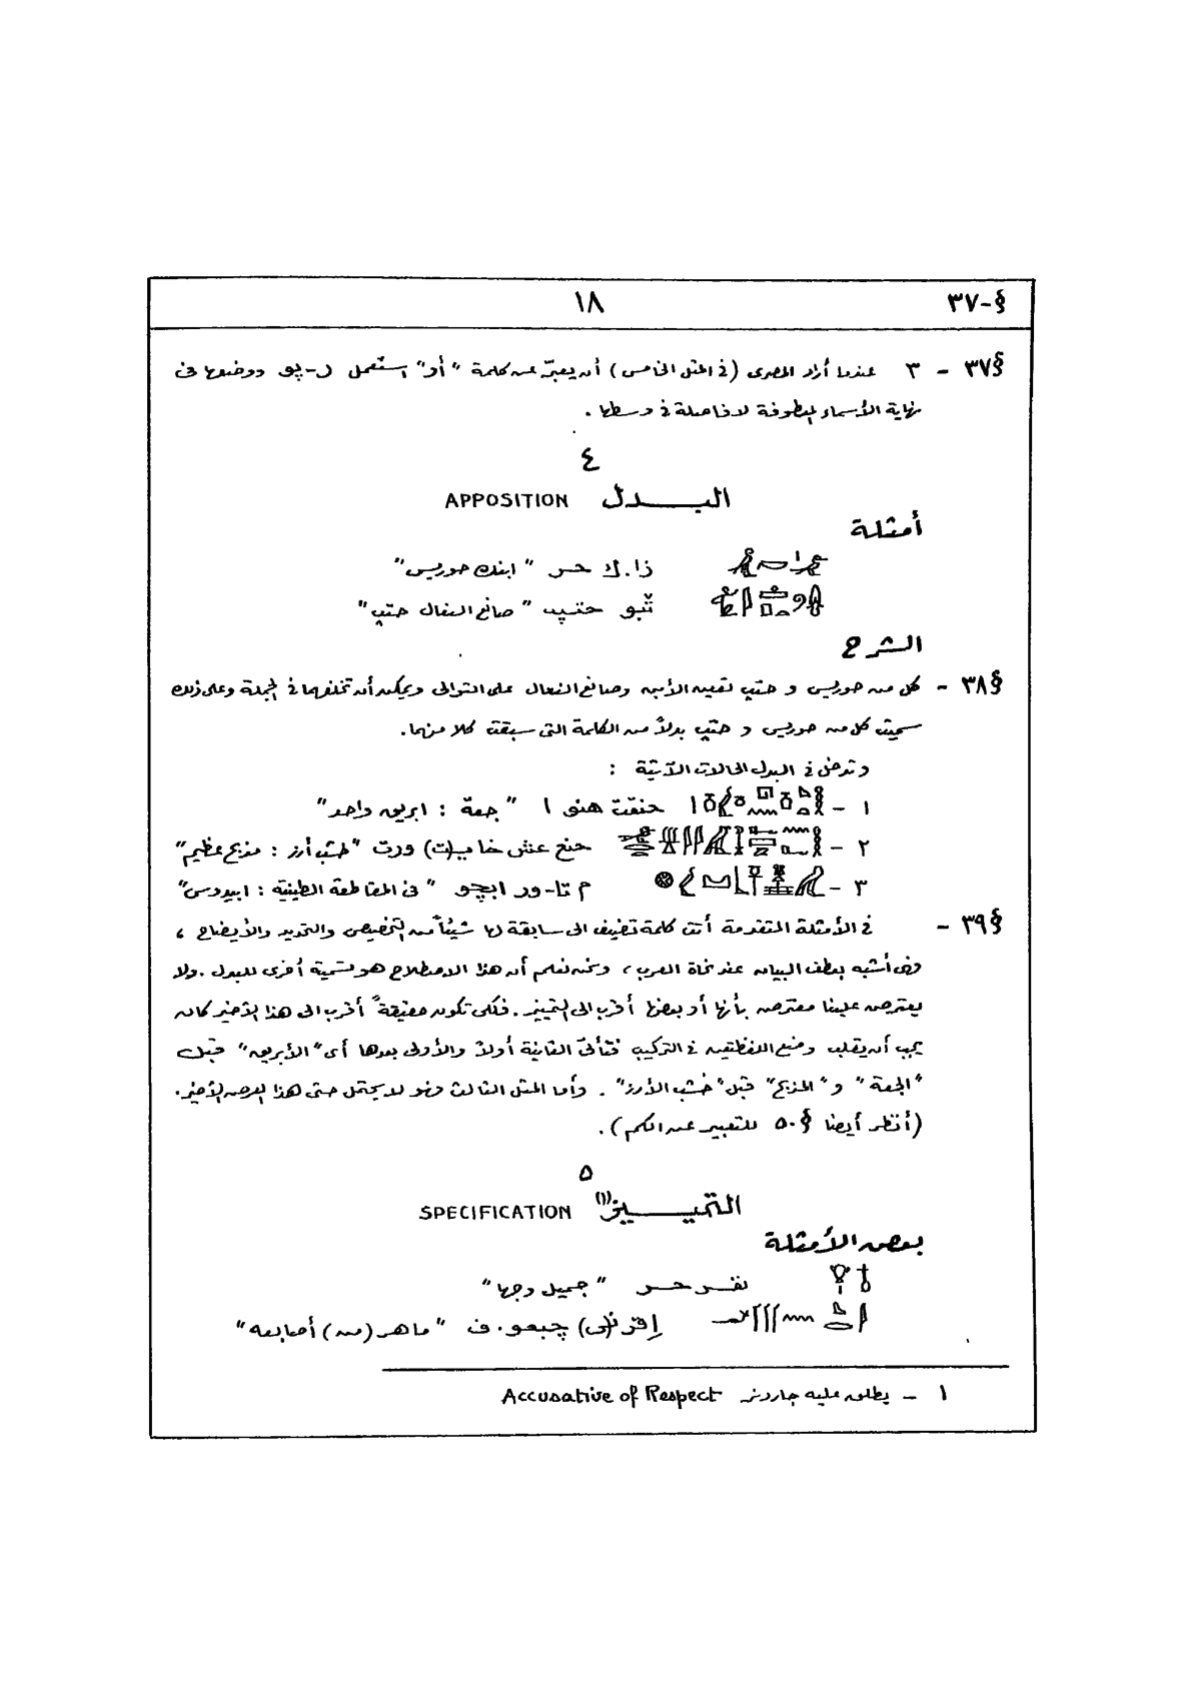 §-٣٧ ١٨
§٣٧ - ٣ عندما أراد المصرى (فى المثل الخامس) أن يعبّر عن كلمة "أو" استعمل ر-پو ووضعها فى
نهاية الأسماء المعطوفة لا فاصلة فى وسطها .
٤
البـــدل APPOSITION
أمثلة
ذا.ك حر "ابنك حوريس"
ثبو حتپ "صانع النعال حتپ"
الشرح
§٣٨ - كل من حوريس و حتپ تعين الأبن وصانع النعال على التوالى ويمكن أن تخلفهما فى الجملة وعلى ذلك
سميت كل من حوريس و حتپ بدلاً من الكلمة التى سبقت كلا منهما.
وتدخل فى البدل الحالات الآتية :
١ - حنقت هنو ١ "جعة : ابريق واحد"
٢ - حنع عش خايـ(ت) ورت "خشب أرز : مذبح عظيم"
٣ - م تا-ور ابچو "فى المقاطعة الطينية : ابيدوس"
§٣٩ - فى الأمثلة المتقدمة أتت كلمة تضيف الى سابقة لها شيئاً من التخصيص والتحديد والأيضاح ،
وهى أشبه بعطف البيان عند نحاة العرب ، ونحن نعلم أن هذا الاصطلاح هو تسمية أخرى للبدل . ولا
يعترض علينا معترض بأنها أو بعضها أقرب الى التمييز . فلكى تكون حقيقةً أقرب الى هذا الأخير كان
يجب أن يقلب وضع اللفظتين فى التركيب فتأتى الثانية أولاً والأولى بعدها أى "الأبريق" قبل
"الجعة" و "المذبح" قبل "خشب الأرز" . وأما المثل الثالث فهو لا يحتمل حتى هذا الفرض الأخير .
(أنظر أيضا §٥٠ للتعبير عن الكم) .
٥
التميـــيز(١) SPECIFICATION
بعض الأمثلة
نفر حر "جميل وجها"
إقر ن(ى) چبعو.ف "ماهر (من) أصابعه"
١ - يطلق عليه جاردنر Accusative of Respect